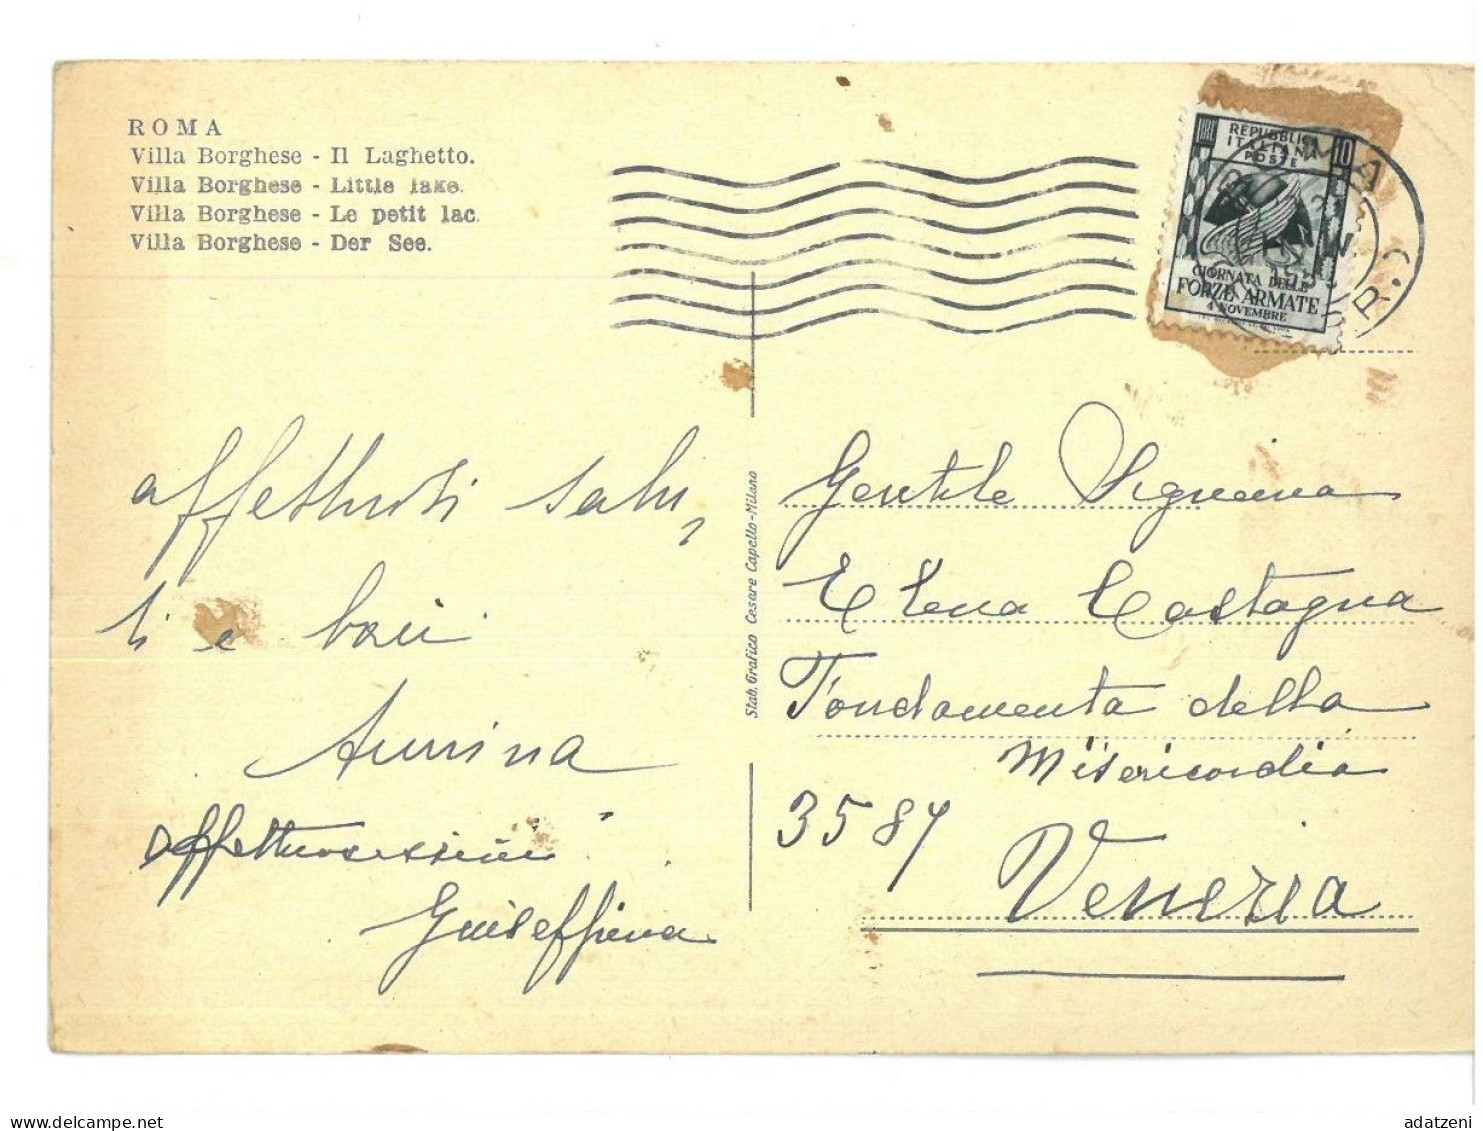 ROMA
Villa Borghese - Il Laghetto.
Villa Borghese - Little lake.
Villa Borghese - Le petit lac.
Villa Borghese - Der See.
LIRE 10
REPUBBLICA
ITALIANA
POSTE
GIORNATA DELLE
FORZE ARMATE
4 NOVEMBRE
ROMA
affettuosi salu,
ti e baci
Annina
affettuosissimi
Guiseffina
Stab. Grafico Cesare Capello-Milano
Gentile Signorina
Elena Castagna
Fondamenta della
Misericordia
3587
Venezia
adatzeni